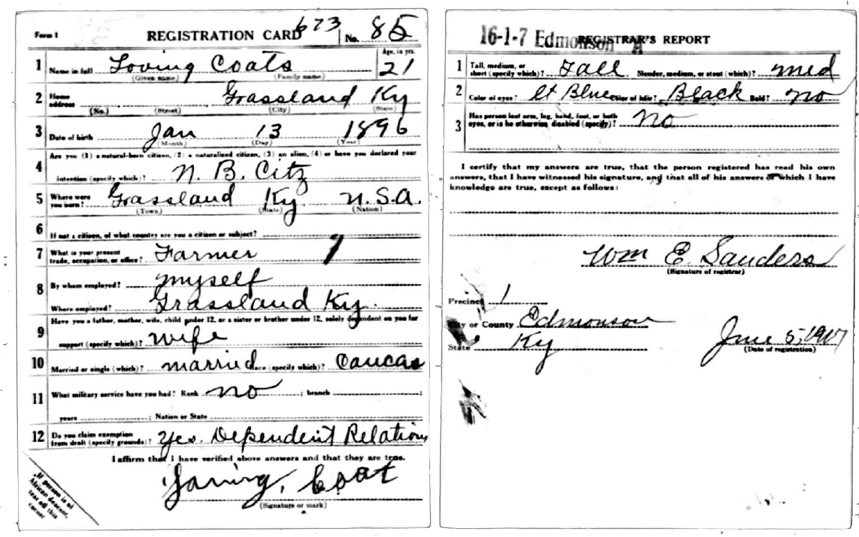 Form 1 REGISTRATION CARD 673 No. 85
1 Name in full Loving Coats Age, in yrs. 21
(Given name) (Family name)
2 Home address Grassland Ky
(No.) (Street) (City) (State)
3 Date of birth Jan 13 1896
(Month) (Day) (Year)
4 Are you (1) a natural-born citizen, (2) a naturalized citizen, (3) an alien, (4) or have you declared your
intention (specify which)? N. B. Citz
5 Where were you born? Grassland Ky U.S.A.
(Town) (State) (Nation)
6 If not a citizen, of what country are you a citizen or subject?
7 What is your present trade, occupation, or office? Farmer 1
8 By whom employed? myself
Where employed? Grassland Ky.
9 Have you a father, mother, wife, child under 12, or a sister or brother under 12, solely dependent on you for
support (specify which)? wife
10 Married or single (which)? married Race (specify which)? Caucas
11 What military service have you had? Rank no ; branch
years ; Nation or State
12 Do you claim exemption from draft (specify grounds)? Yes. Dependent Relation
I affirm that I have verified above answers and that they are true.
Loving, Coat
(Signature or mark)
If person is of
African descent,
tear off this
corner
16-1-7 Edmonson A
REGISTRAR'S REPORT
1 Tall, medium, or short (specify which)? Tall Slender, medium, or stout (which)? med
2 Color of eyes? Lt Blue Color of hair? Black Bald? no
3 Has person lost arm, leg, hand, foot, or both
eyes, or is he otherwise disabled (specify)? no
I certify that my answers are true, that the person registered has read his own
answers, that I have witnessed his signature, and that all of his answers of which I have
knowledge are true, except as follows:
Wm E. Sanders
(Signature of registrar)
Precinct 1
City or County Edmonson
State Ky
June 5, 1917
(Date of registration)